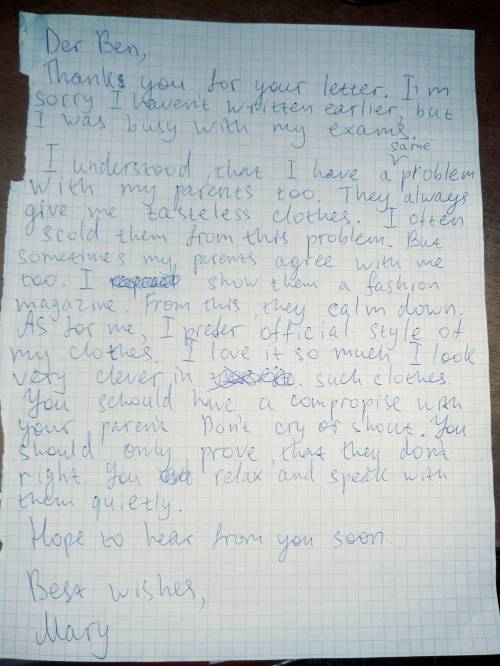 Der Ben,
Thanks you for your letter. I'm
sorry I haven't written earlier, but
I was busy with my exams.
same
I understood, that I have a problem
with my parents too. They always
give me tasteless clothes. I often
scold them from this problem. But
sometimes my parents agree with me
too. I show them a fashion
magazine. From this, they calm down.
As for me, I prefer official style of
my clothes. I love it so much. I look
very clever in such clothes
You schould have a compropise with
your parent. Don't cry or shout. You
should only prove, that they don't
right. You relax and speak with
them quietly.
Hope to hear from you soon.
Best wishes,
Mary